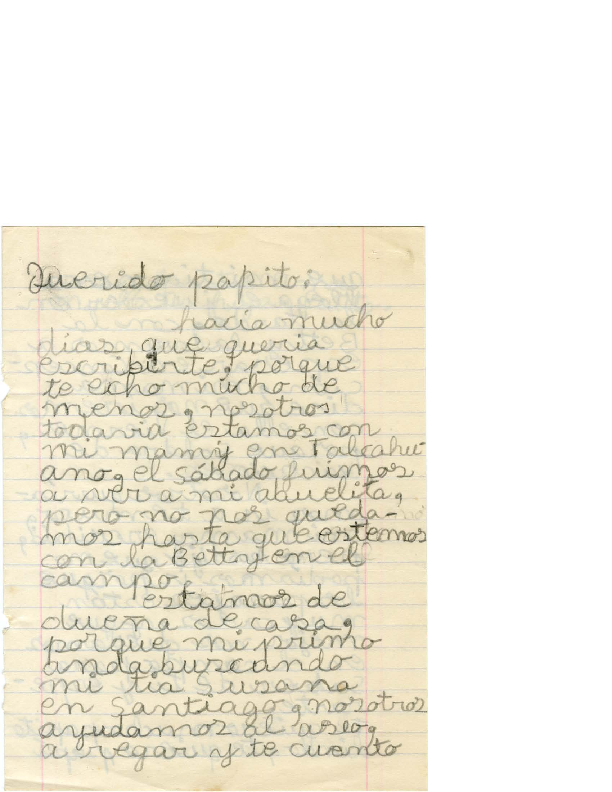 Querido papito:
hacía mucho
días que queria
escribirte, porque
te echo mucho de
menos, nosotros
todavia estamos con
mi mamy en Talcahu
ano, el sábado fuimos
a ver a mi abuelita,
pero no nos queda-
mos hasta que estemos
con la Betty en el
campo.
estamos de
dueña de casa,
porque mi primo
anda buscando
mi tia Susana
en Santiago, nosotros
ayudamos al aseo,
a regar y te cuento